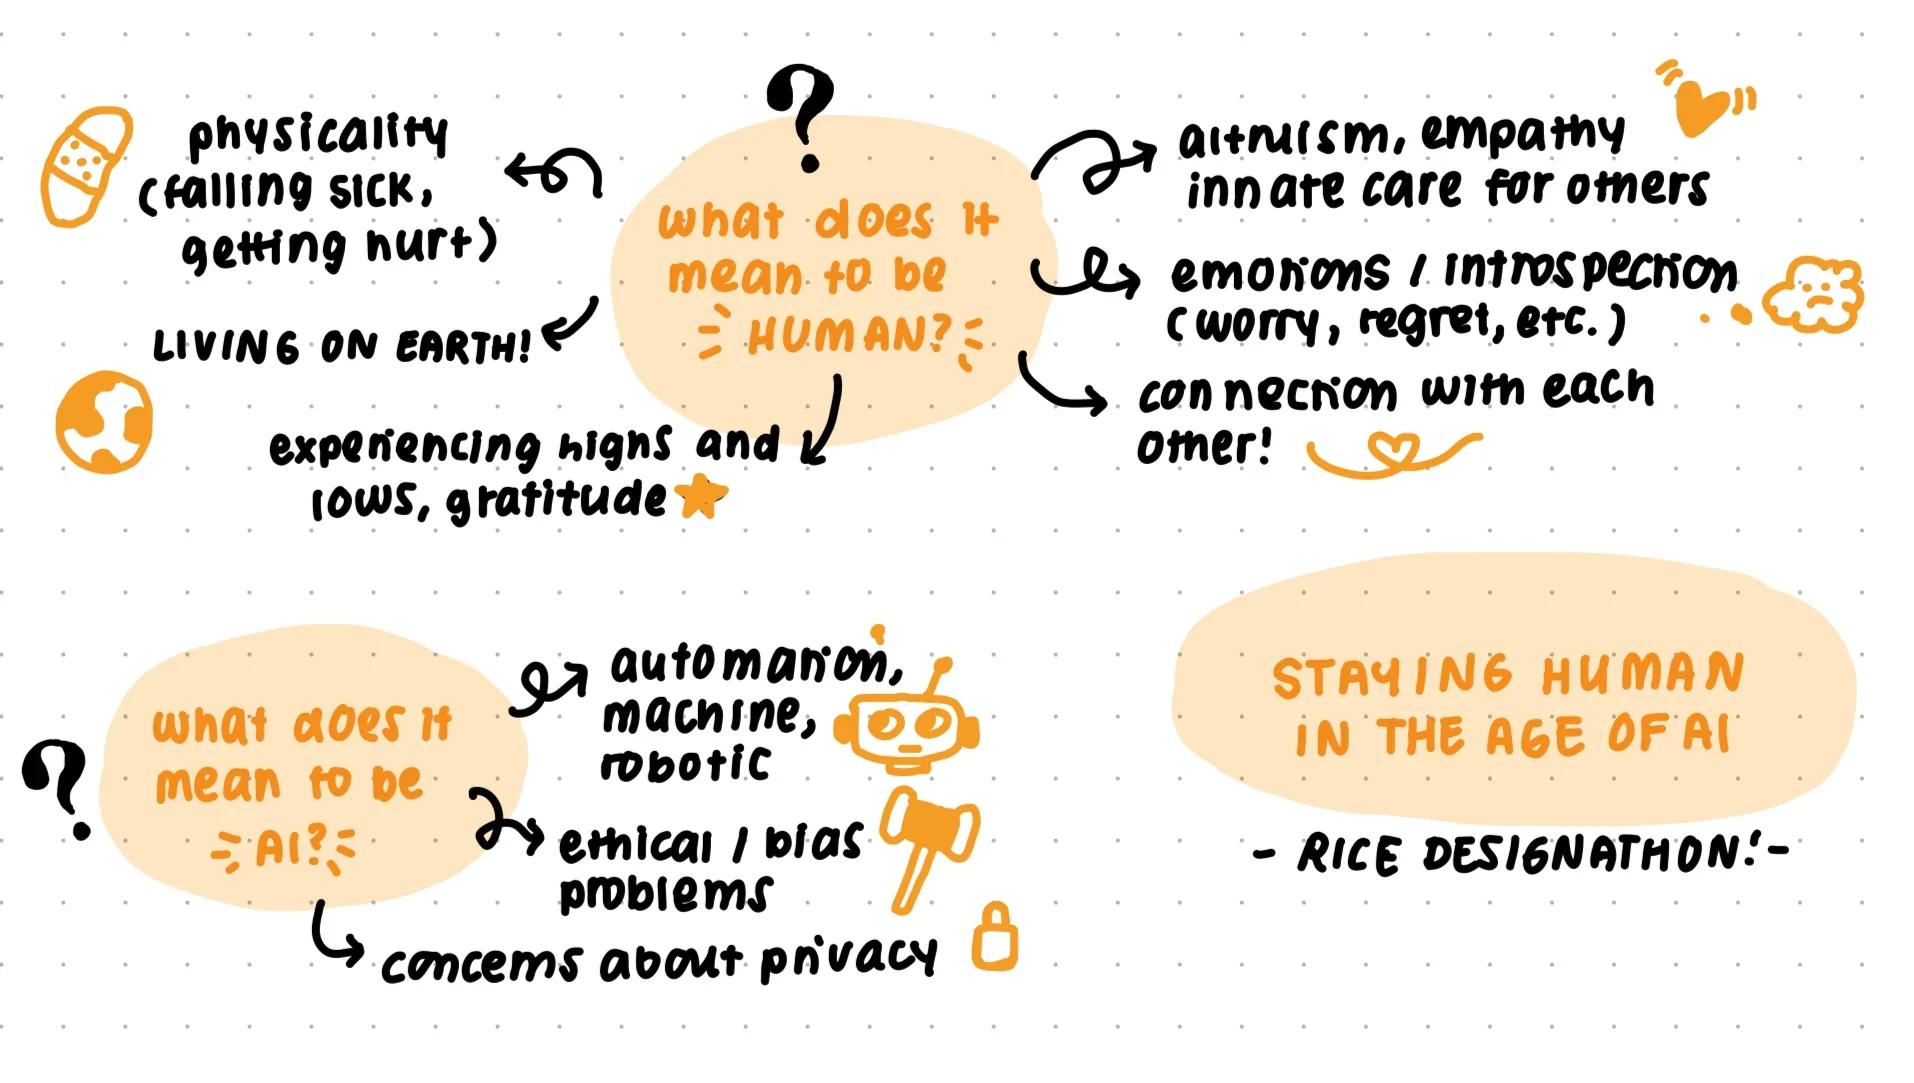 ?
what does it
mean to be
HUMAN?
physicality
(falling sick,
getting hurt)
LIVING ON EARTH!
experiencing highs and
lows, gratitude
altruism, empathy
innate care for others
emotions / introspection
(worry, regret, etc.)
connection with each
other!
?
what does it
mean to be
AI?
automation,
machine,
robotic
ethical / bias
problems
concerns about privacy
STAYING HUMAN
IN THE AGE OF AI
- RICE DESIGNATHON! -